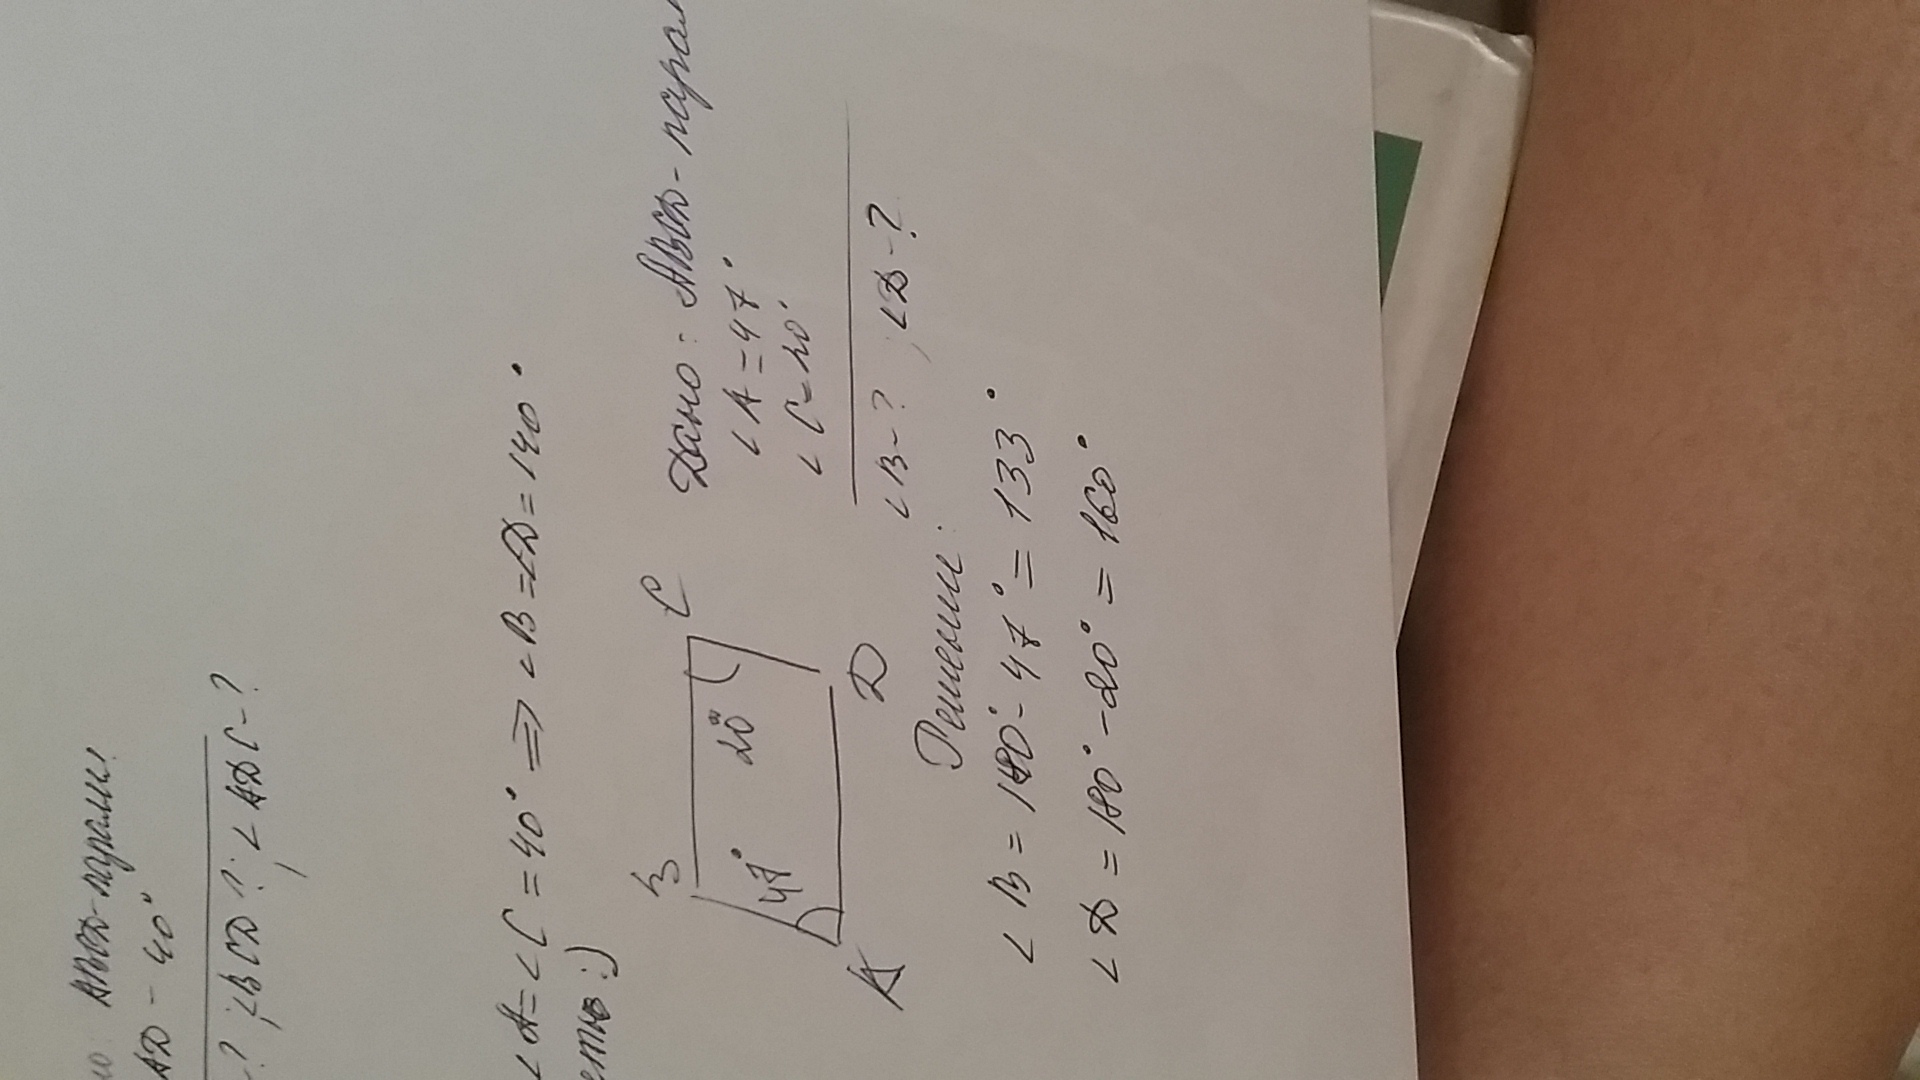 АВСD-паралл.
AD - 40°
-? ; ∠BCD-?; ∠ADC-?
∠A=∠C=40° => ∠B=∠D=140°
B
C
47°
20°
A
D
Дано: ABCD-парал
∠A=47°
∠C=20°
∠B-? , ∠D-?
Решение:
∠B=180°-47°=133°
∠D=180°-20°=160°